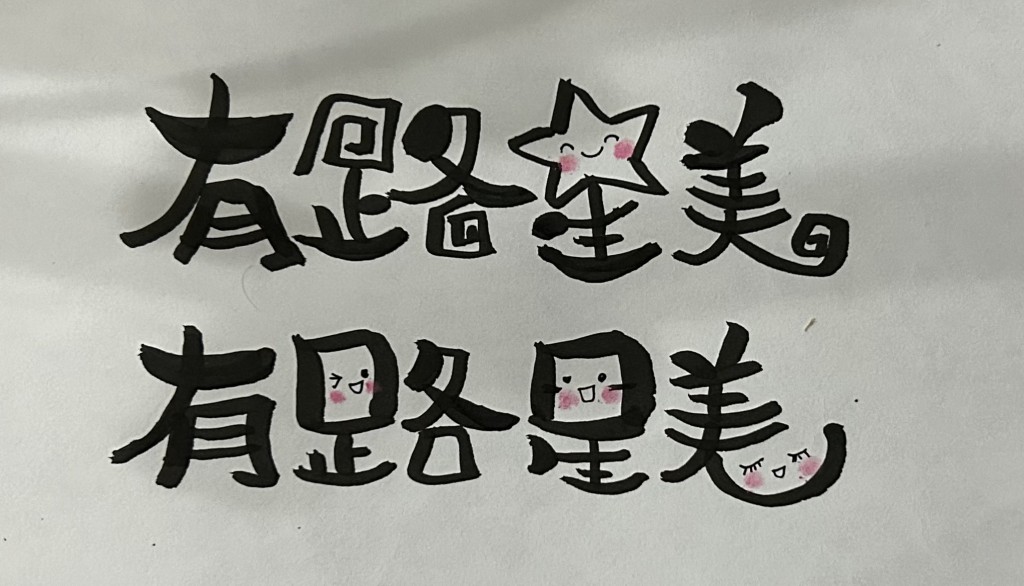 有路星美
有路星美